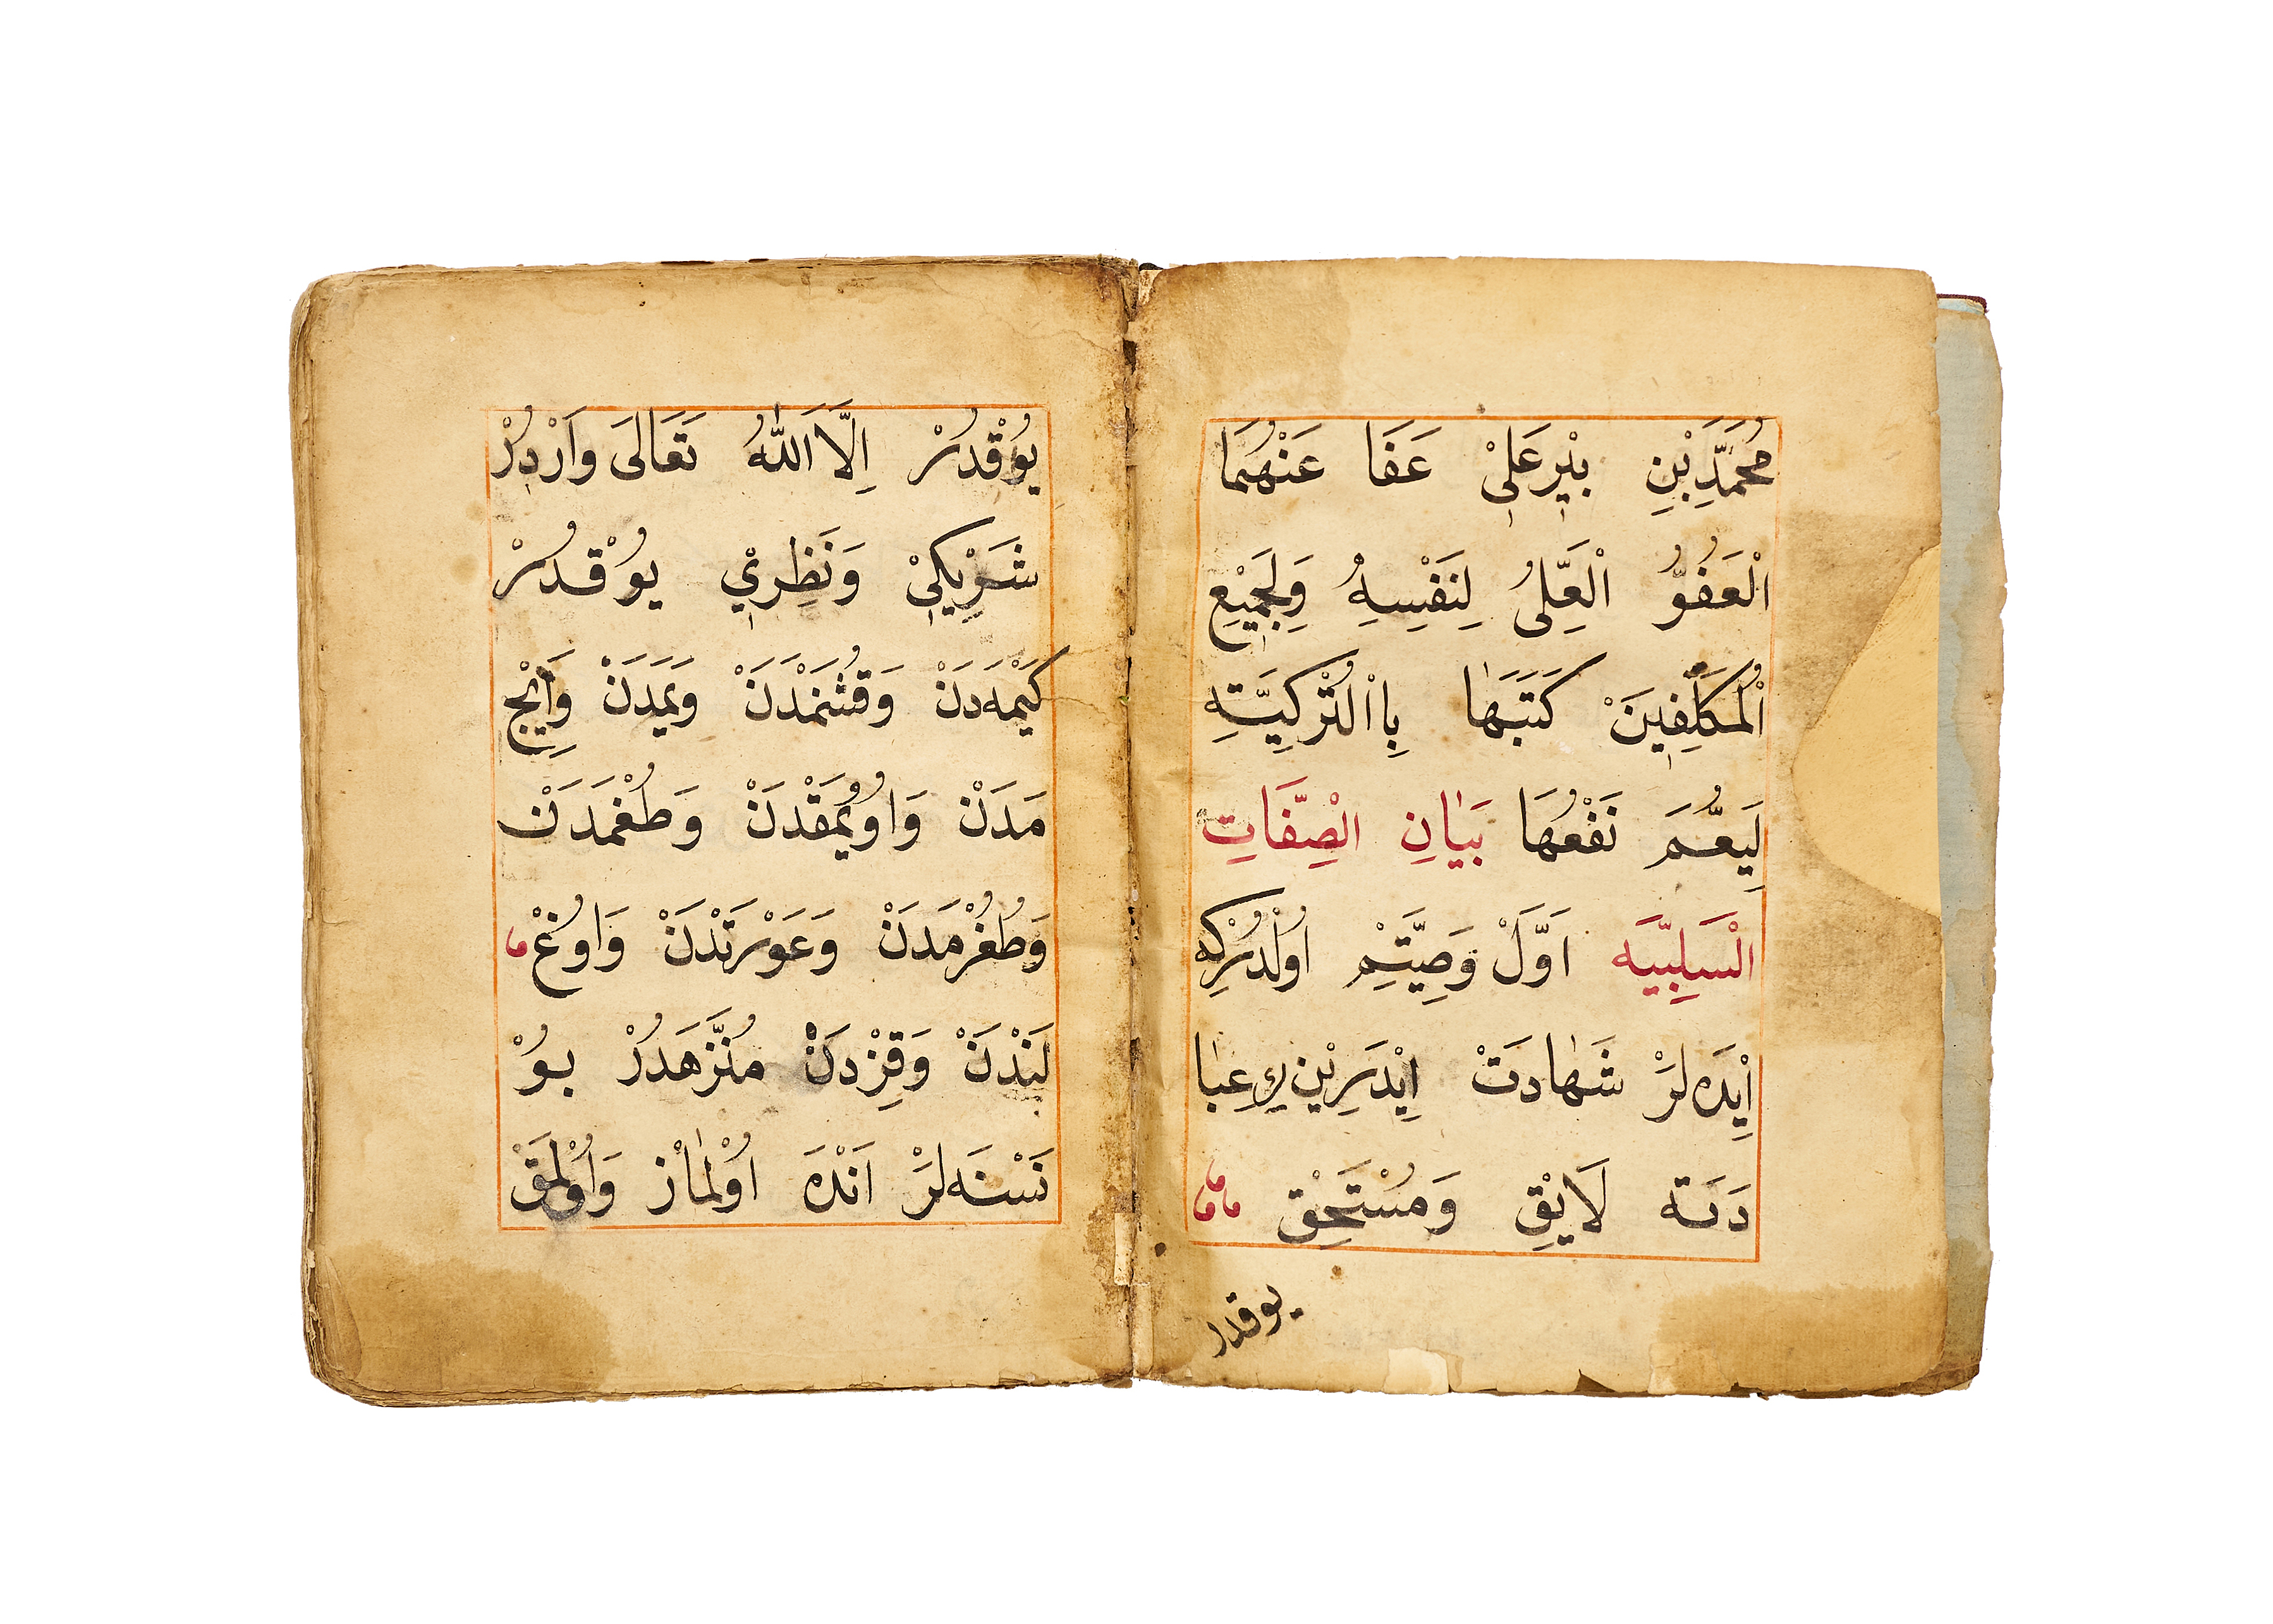 مُحَمَّدِبْنِ بِيْرعَلِيْ عَفَا عَنْهُمَا
الْعَفُوُّ الْعَلِىُّ لِنَفْسِهِ وَلِجَمِيْعِ
الْمُكَلَّفِينَ كَتَبَهَا بِاالْتُرْكِيَّتِهِ
لِيَعُّمَ نَفْعُهَا بَيَانِ الصِّفَاتِ
الْسَلِبِيَّه اَوَّلْ وَصِيَّتِمْ اُولْدُرْكِه
اِيْدَه لَرْ شَهَادَتْ اِيْدَرِيْن كِ عِبَا
دَتَه لَايْقِ وَمُسْتَحِقْ
يوقدر
يُوْقْدُرْ اِلَّا اَللّٰهُ تَعَالَى وَاَرْدِرُ
شَرِيْكِيْ وَنَظِرِيْ يُوْقْدُرْ
كَيْمَه دَنْ وَقُشَنْمَدَنْ وَيَمَدَنْ وَاِيْجْ
مَدَنْ وَاوُيُمَقْدَنْ وَطُغْمَدَنْ
وَطُغُرْمَدَنْ وَعَوْرَتَدَنْ وَاوُغْ
لَنْدَنْ وَقِزْدَنْ مُنَزَّهَدُرْ بُوْ
نَسْنَه لَرْ اَنْدَه اُوْلْمَازْ وَاُوْلْمَقْ